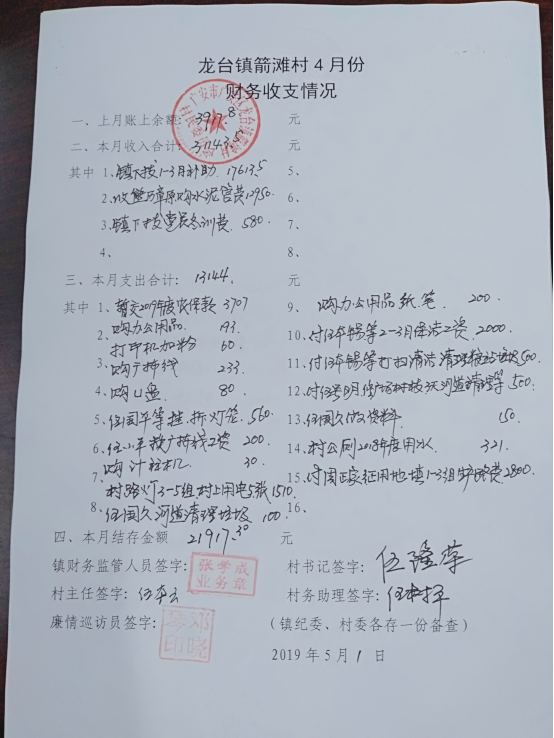 龙台镇箭滩村4月份
财务收支情况
一、上月账上余额: 3917.8 元
二、本月收入合计: 31143.5 元
其中 1、镇下拨1-3月补助 17613.5 5、
2、收 水泥管费12950. 6、
3、镇下拨党员冬训费. 580. 7、
4、 8、
三、本月支出合计: 13144. 元
其中 1、暂交2019年度农保款 3707 9、购办公用品纸笔. 200.
2、购办公用品. 193. 10、付伍华锡等2-3月保洁工资. 2000.
打印机加粉 60. 11、付伍华锡等打扫清洁清理垃圾500.
3、购广播线 233. 12、付 河道清理等 500.
4、购U盘 80 13、伍国久收资料 150.
5、伍国平等挂.拆灯笼. 560. 14、村公厕2018年度用水. 321.
6、伍小平 广播线工资 200. 15、付周正家征用地.填1-3组 路费2800.
7、购计算机 30. 16、
村路灯3-5组村上用电5张1510.
8、伍国久河道清理垃圾 100.
四、本月结存金额 21917.30 元
镇财务监管人员签字: 张学成业务章 村书记签字:
村主任签字: 村务助理签字:
廉情巡访员签字: 邓晓 印 (镇纪委、村委各存一份备查)
2019年5月1日